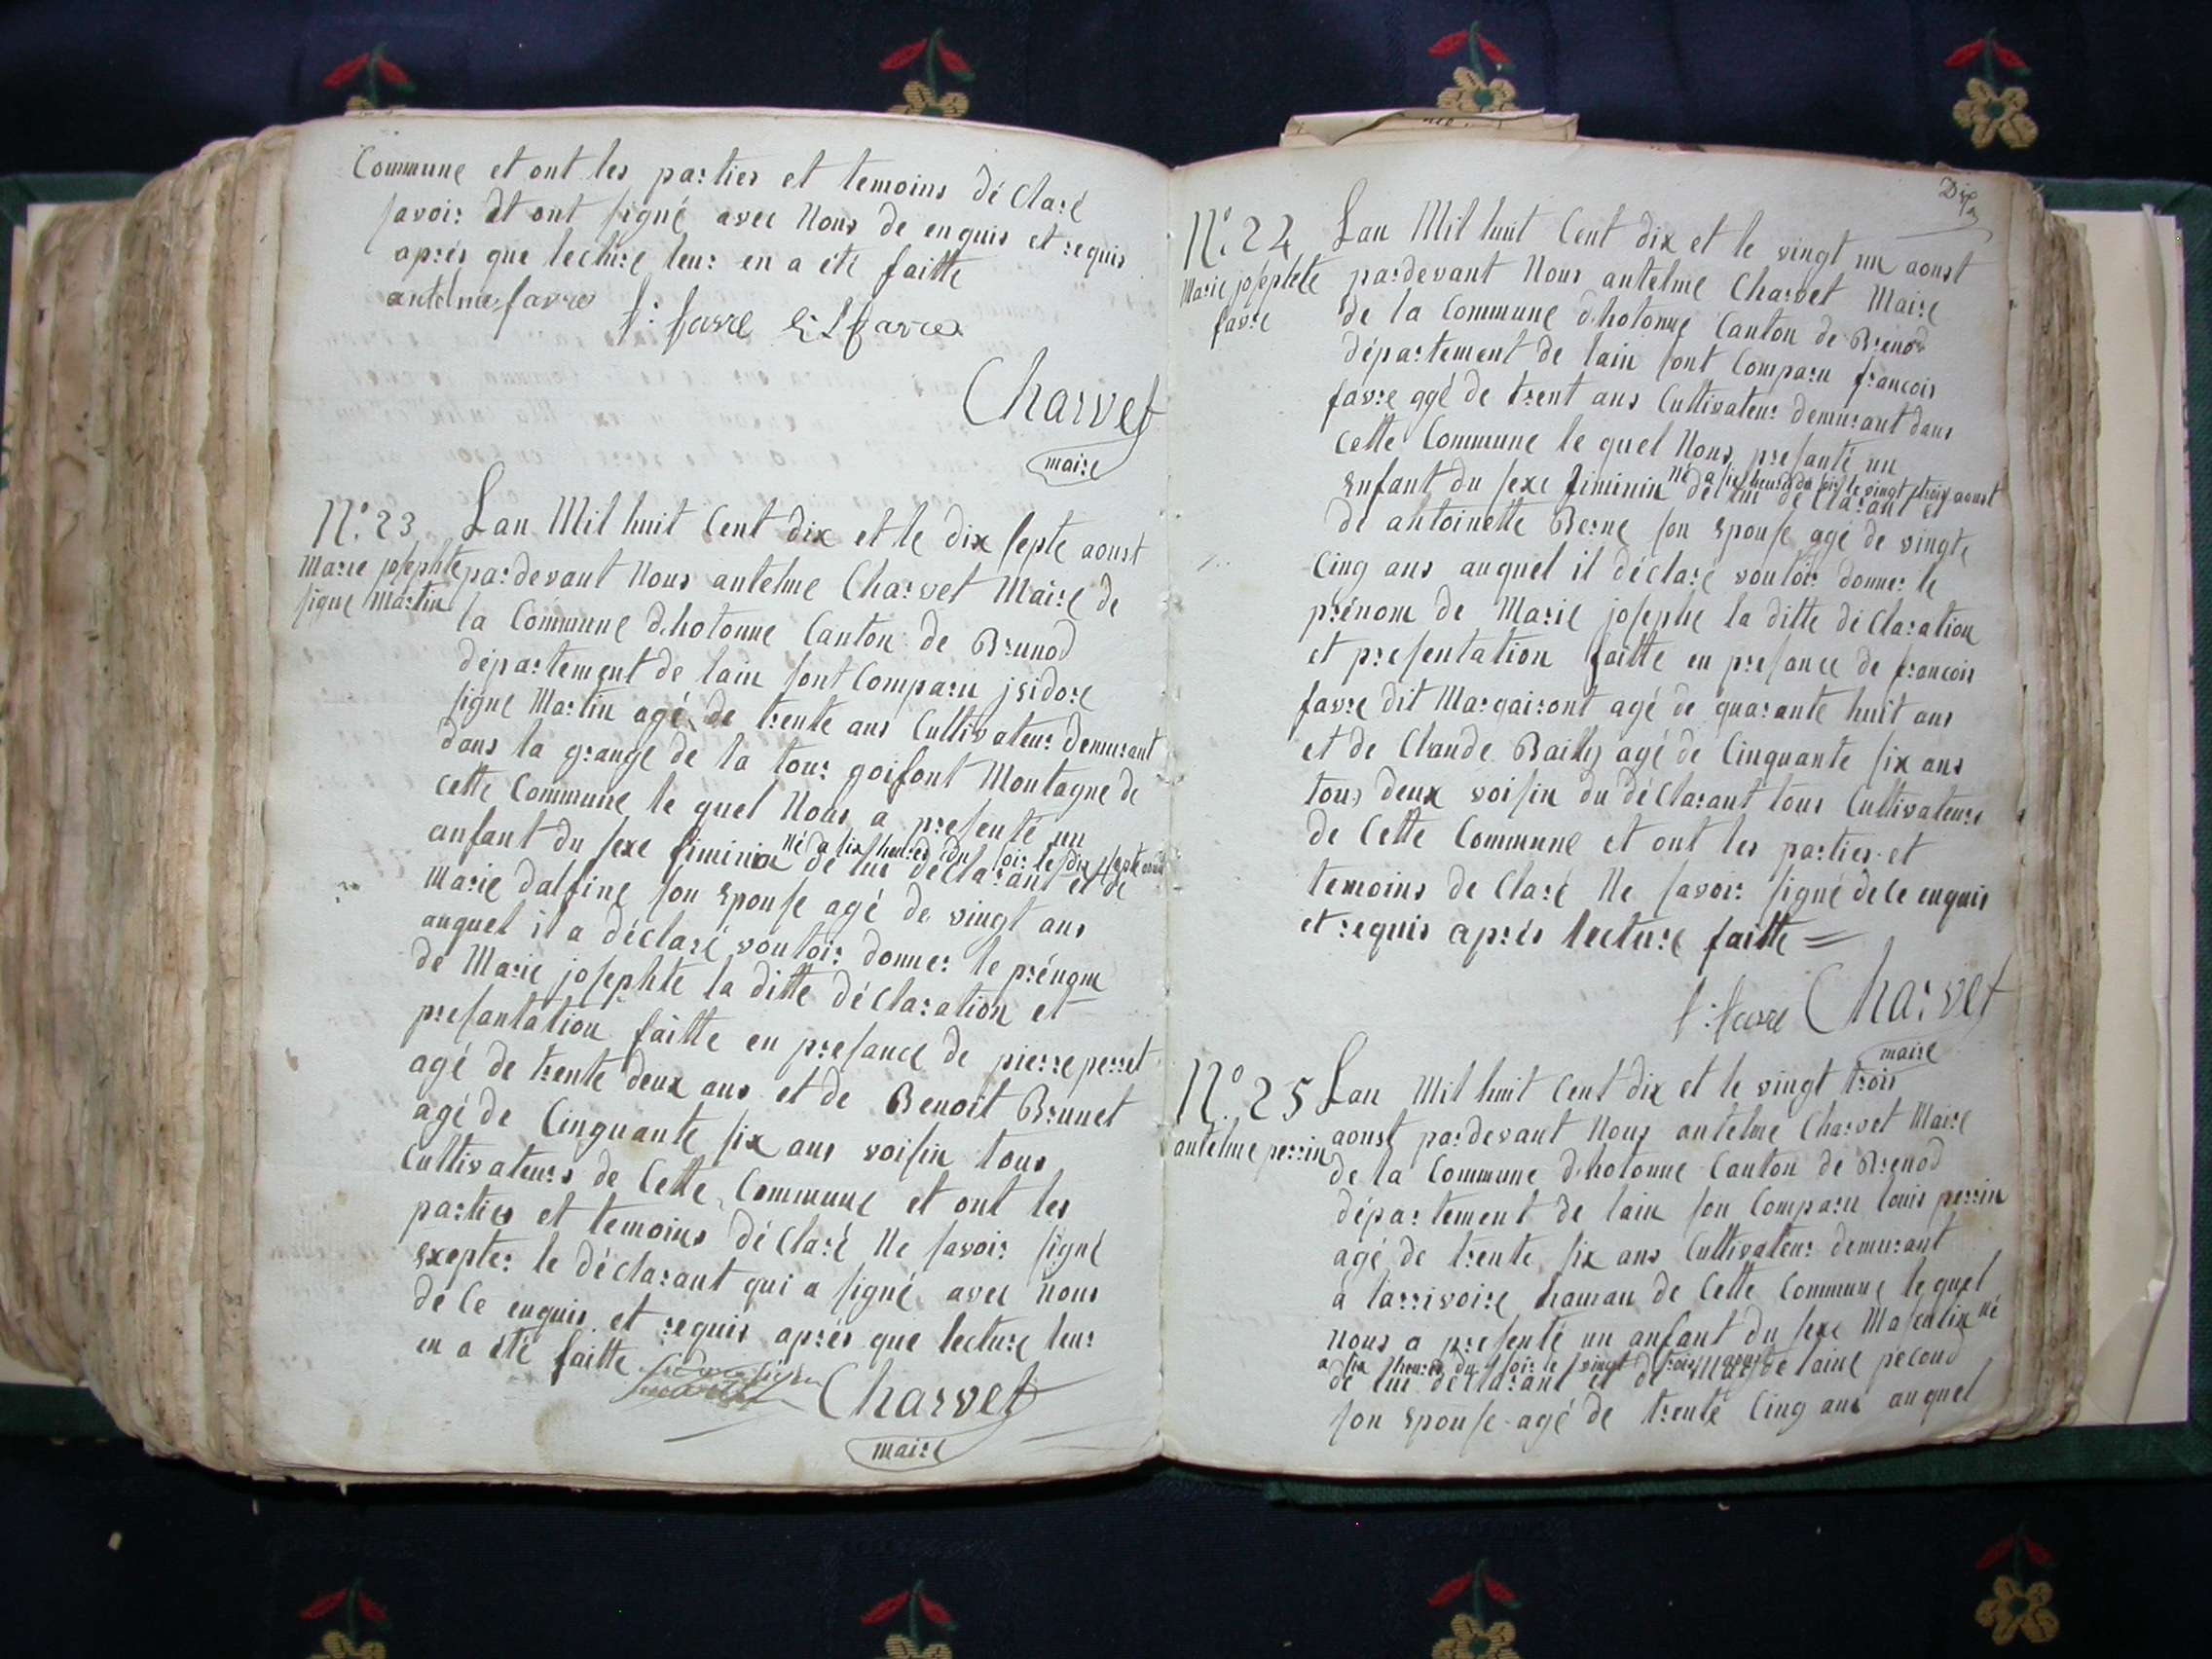 Commune et ont les parties et temoins déClaré
savoir et ont signé avec Nous de enquis et requis
aprés que lecture leur en a été faitte
antelme favre f: favre
Charvet
maire
N° 23
Marie josephte
signe Martin
Lan Mil huit Cent dix et le dix septe aoust
pardevant Nous antelme Charvet Maire de
la Commune d.hotonne Canton de Brunod
département de lain sont Comparu jsidore
signe Martin agé de trente ans Cultivateur demurant
dans la grange de la tour goifont Montagne de
cette Commune le quel Nous a presenté un
né a six heures du soir le dix septe
anfant du sexe fiminin de lui déclarant et de
Marie dalfine son Epouse agé de vingt ans
auquel il a déclaré vouloir donner le prénom
de Marie josephte la ditte déclaration et
presantation faitte en presance de pierre perret
agé de trente deux ans et de Benoit Brunet
agé de Cinquante six ans voisin tous
Cultivateurs de Cette Commune et ont les
parties et temoins déClaré Ne savoir signé
Exepter le déclarant qui a signé avec Nous
de Ce enquis et requis aprés que lecture leur
en a été faitte
Charvet
maire
N° 24
Marie josephte
favre
Lan Mil huit Cent dix et le vingt un aoust
pardevant Nous antelme Charvet Maire
de la Commune d.hotonne Canton de Brenod
département de lain sont Comparu francois
favre agé de trent ans Cultivateur demurant dans
cette Commune le quel Nous presanté un
né a heures du soir le vingt aoust
Enfant du sexe fiminin de lui déClarant et
de antoinette Berne son Epouse agé de vingte
Cinq ans auquel il déclaré vouloir donner le
prénom de Marie josephe la ditte déClaration
et presentation faitte en presance de francois
favre dit Margairont agé de quarante huit ans
et de Claude Bailly agé de Cinquante six ans
tous deux voisin du déClarant tous Cultivateurs
de Cette Commune et ont les parties et
temoins de Claré Ne savoir signé de Ce enquis
et requis aprés lecture faitte =
f: favre Charvet
maire
N° 25
antelme perrin
Lan Mil huit Cent dix et le vingt trois
aoust pardevant Nous antelme Charvet Maire
de la Commune d.hotonne Canton de Brenod
département de lain son Comparu louis perrin
agé de trente six ans Cultivateur demurant
á larrivoire hamau de Cette Commune le quel
Nous a presenté un anfant du sexe Masculin né
a six heures du soir le vingt trois aoust
de lui déClarant et de
son Epouse agé de trente Cinq ans auquel